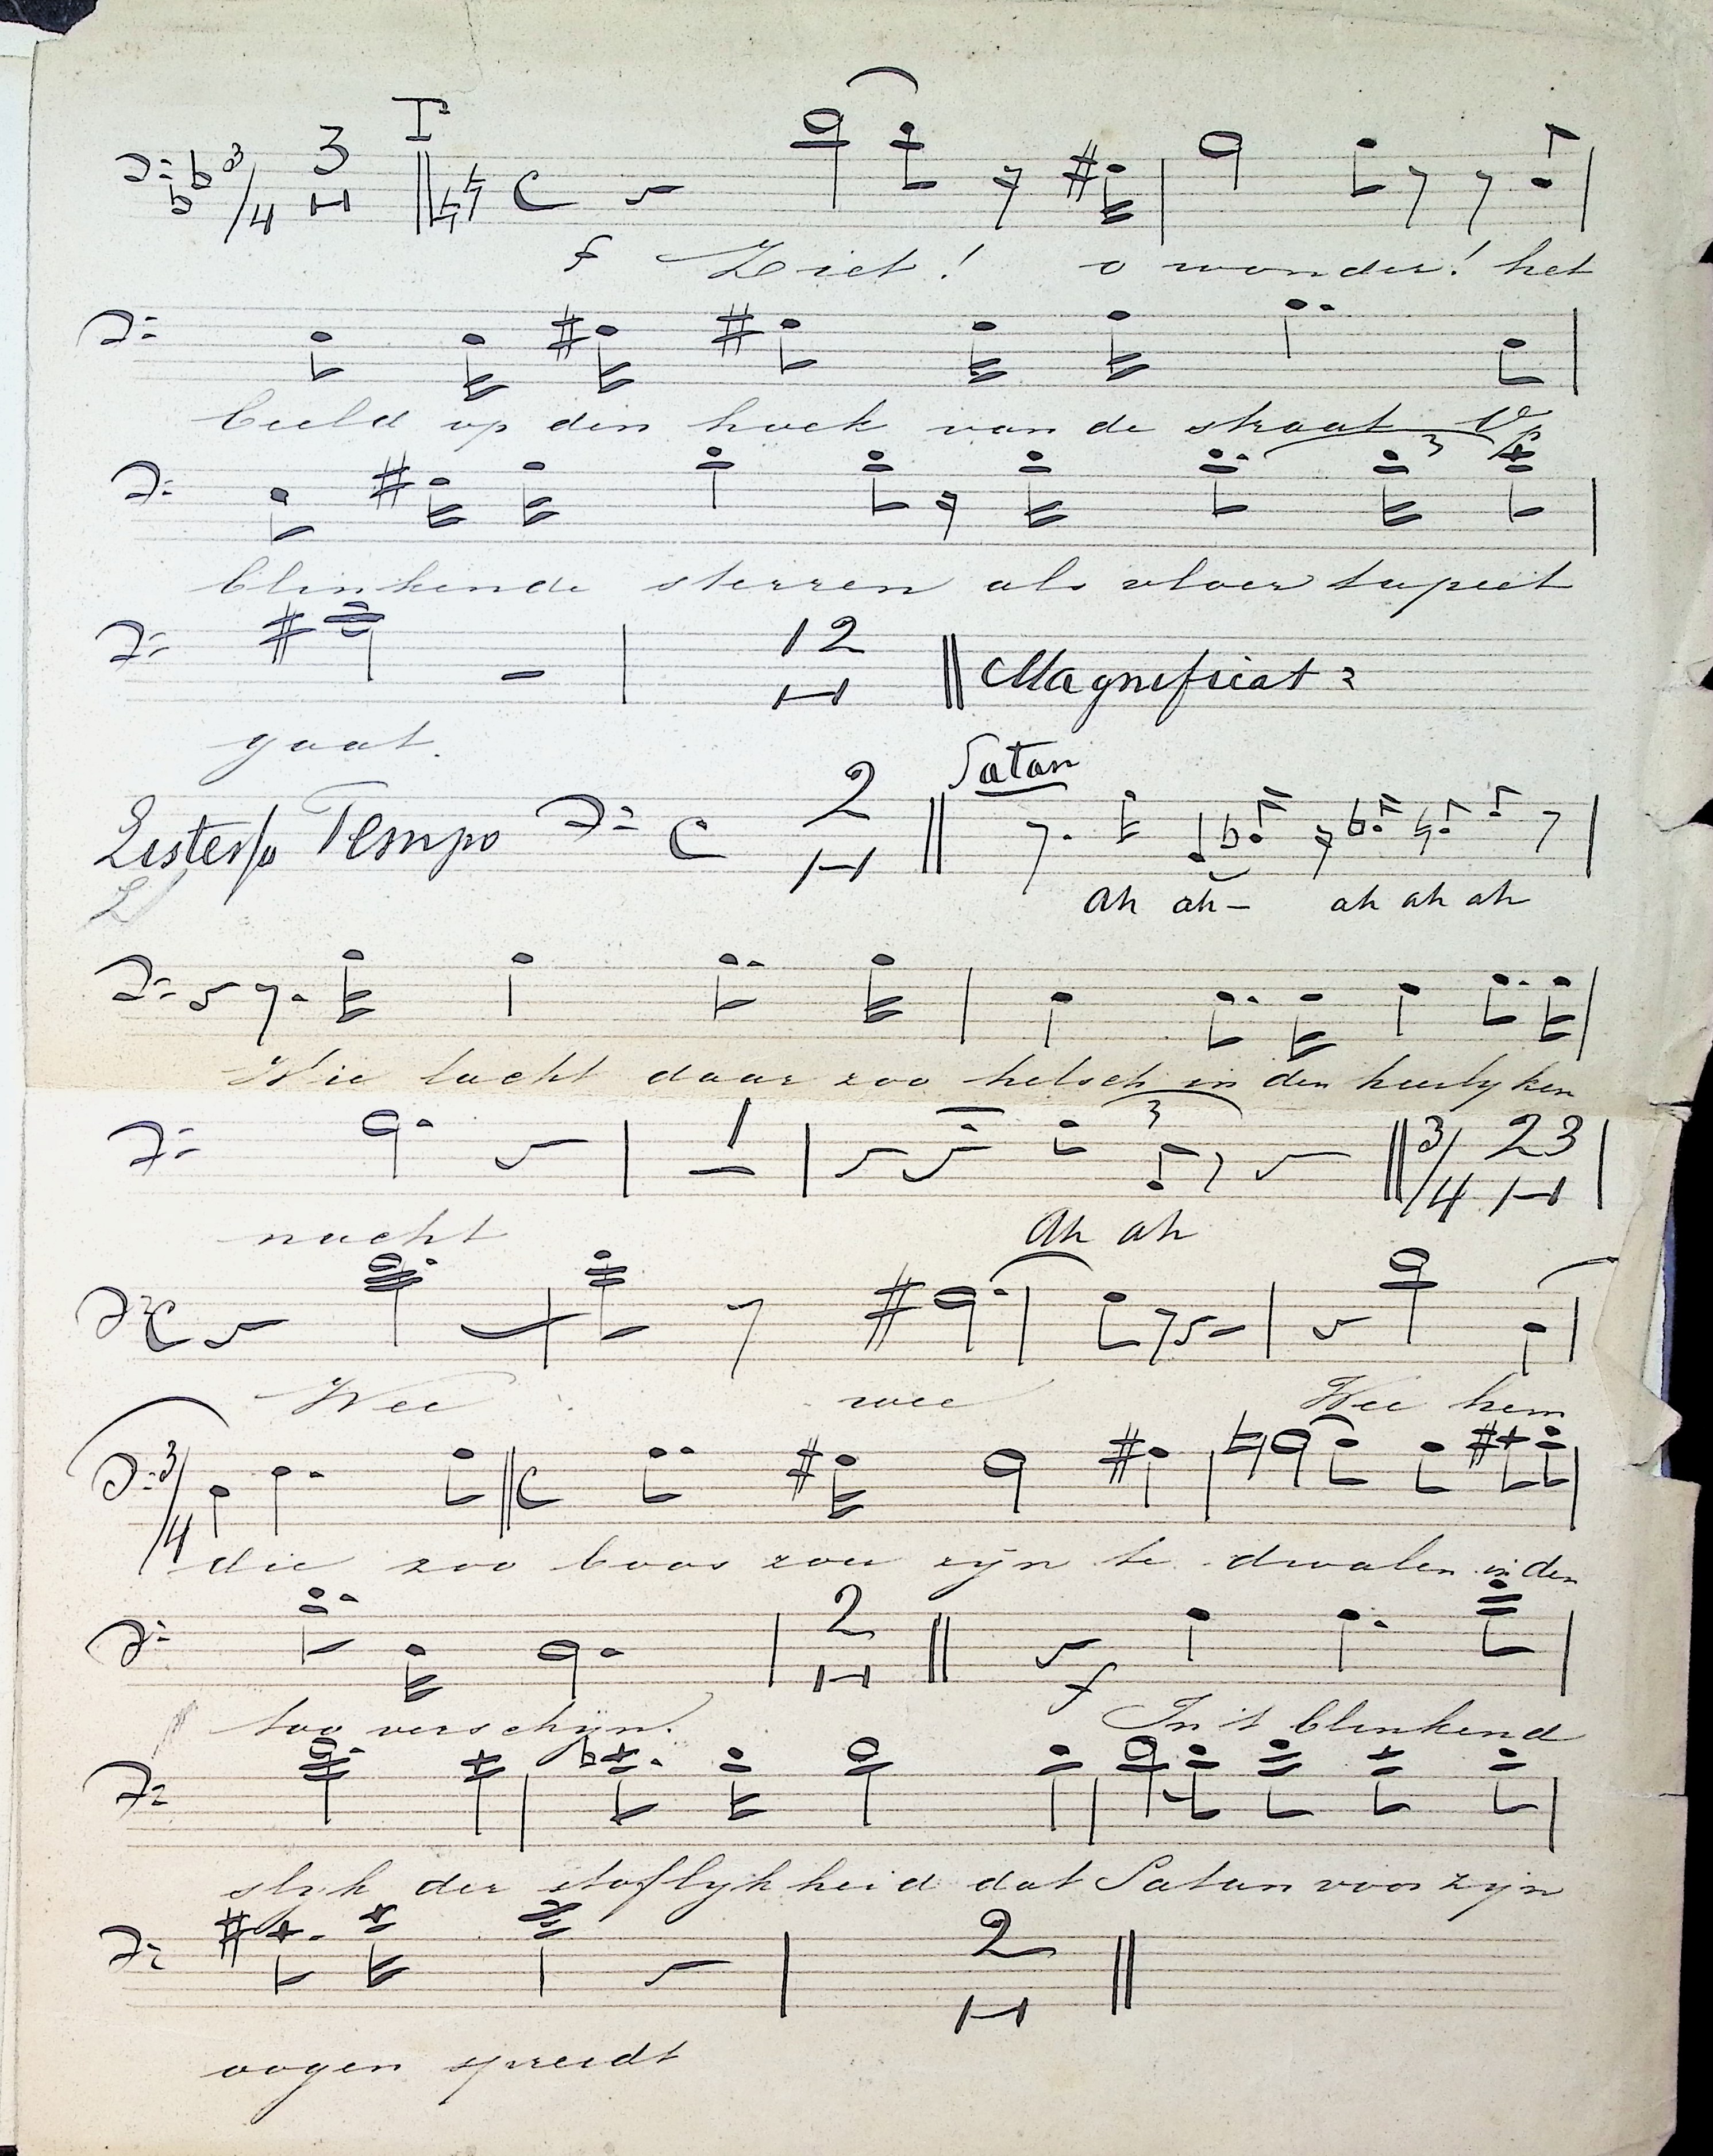 3/4 3 I C
f Ziet! o wonder! het
beeld op den hoek van de straat Op
3
blinkende sterren als vloer tapeet
12 Magnificat
gaat.
Satan
Listesso Tempo C 2
Ah ah- ah ah ah
Wie lacht daar zoo helsch in den heerlyken
1 3 3/4 23
nacht Ah ah
C
Wee wee Wee hem
3/4 C
die zoo boos zou zijn te dwalen in den
2 f
too verschijn. In 't blinkend
slyk der stoflykheid dat Satan voor zijn
2
oogen spreidt